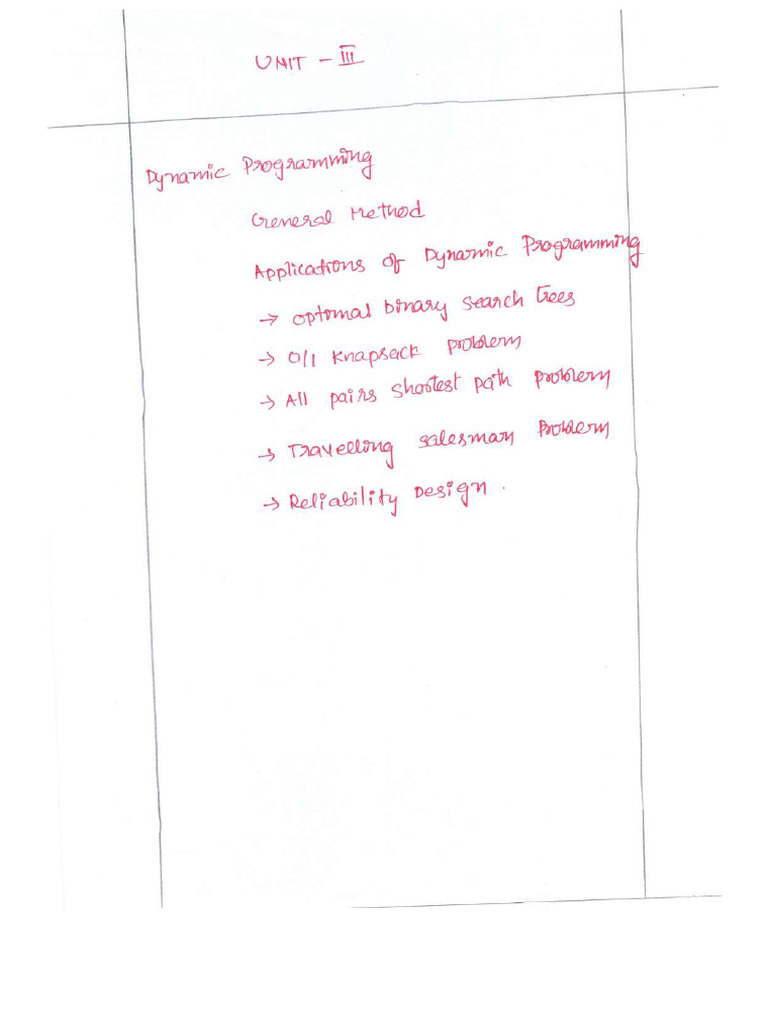 UNIT - III
Dynamic Programming
General Method
Applications of Dynamic Programming
→ optomal binary search trees
→ 0/1 knapsack problem
→ All pairs shortest path problem
→ Travelling salesman problem
→ Reliability Design.